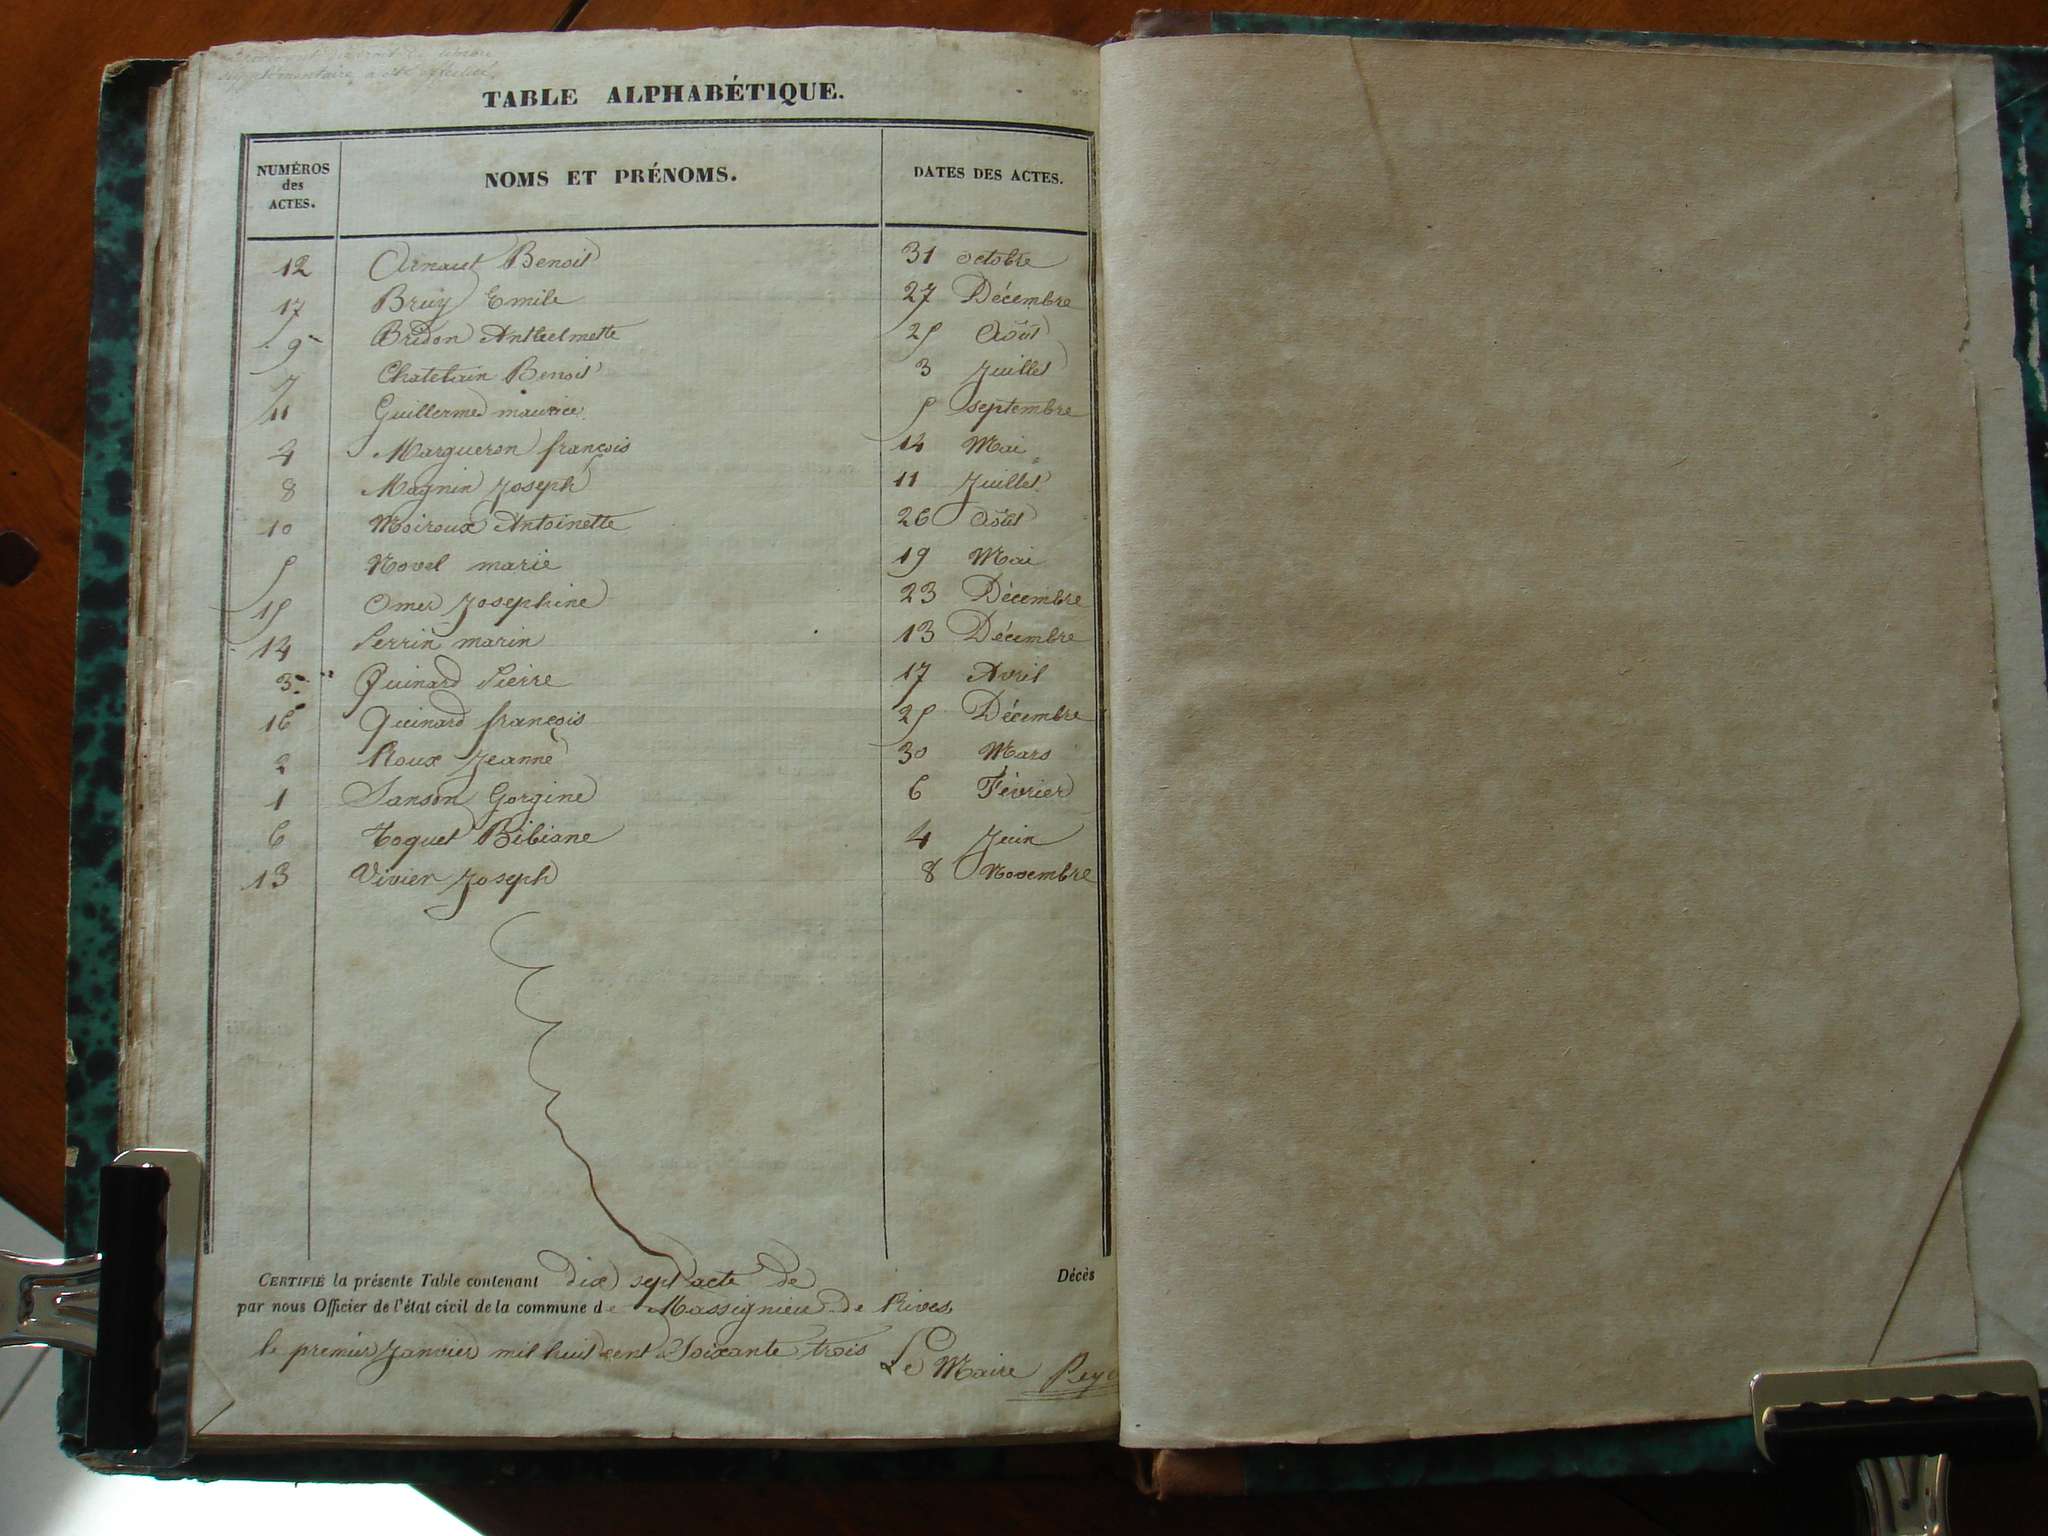 supplémentaire a été
TABLE ALPHABÉTIQUE.
NUMÉROS des ACTES. NOMS ET PRÉNOMS. DATES DES ACTES.
12 Arnaut Benoit 31 octobre
17 Bruy Emile 27 Décembre
9 Bridon Anthelmette 25 Août
7 Chatelain Benoit 3 Juillet
11 Guillermed maurice 5 septembre
4 Margueron françois 14 Mai
8 Magnin Joseph 11 Juillet
10 Moiroux Antoinette 26 Août
5 Novel marie 19 Mai
15 Omer Josephine 23 Décembre
14 Perrin marin 13 Décembre
3 Quinard Pierre 17 Avril
16 Quinard françois 25 Décembre
2 Roux Jeanne 30 Mars
1 Sanson Gorgine 6 Février
6 Toquet Bibiane 4 Juin
13 Vivier Joseph 8 Novembre
CERTIFIÉ la présente Table contenant dix sept acte de Décès
par nous Officier de l'état civil de la commune de Massignieu de Rives
le premier Janvier mil huit cent Soixante trois Le Maire